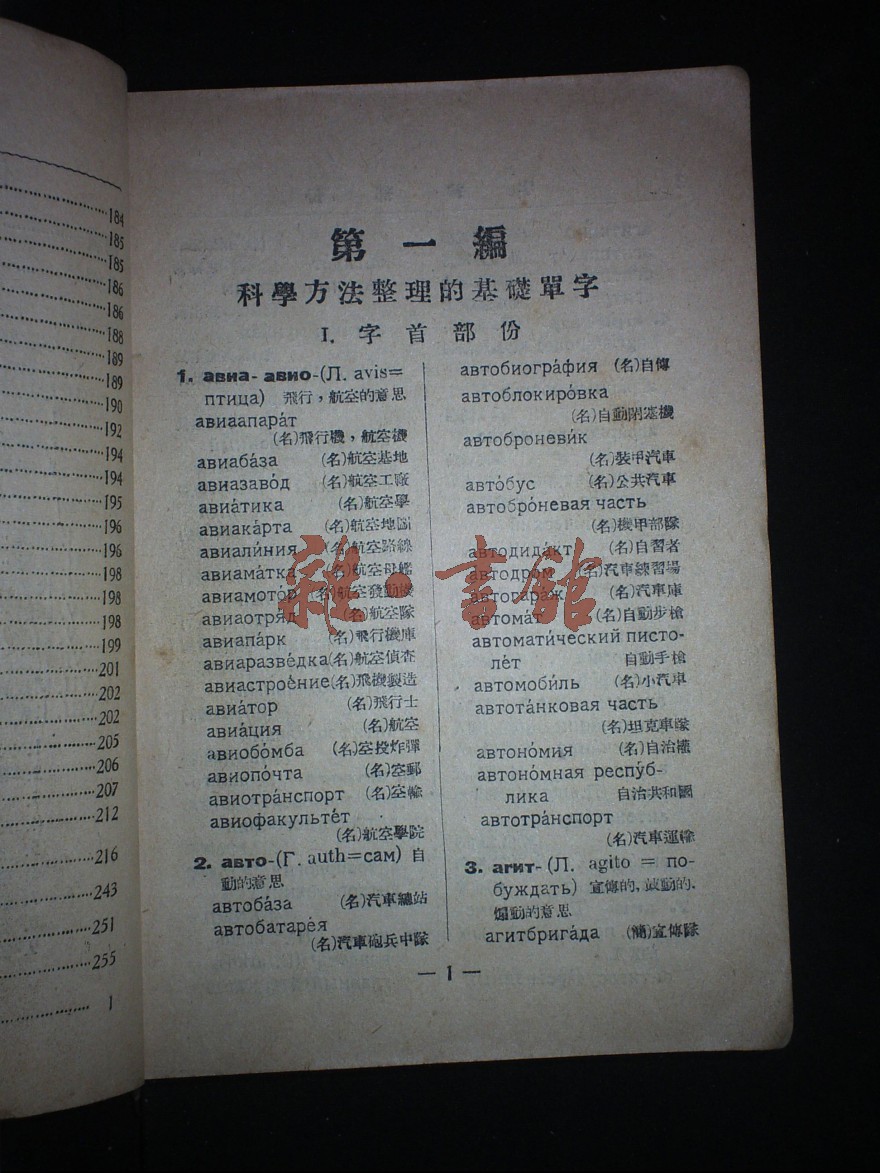 184
185
185
186
186
188
189
189
190
192
194
194
195
196
196
198
198
198
199
201
202
202
205
206
207
212
216
243
251
255
1
第一編
科學方法整理的基礎單字
I. 字首部份
1. авиа- авио-(Л. avis=
птица) 飛行，航空的意思
авиаапара́т
(名)飛行機，航空機
авиаба́за (名)航空基地
авиазаво́д (名)航空工廠
авиа́тика (名)航空學
авиака́рта (名)航空地圖
авиали́ния (名)航空路線
авиама́тка (名)航空母艦
авиамото́р (名)航空發動機
авиаотря́д (名)航空隊
авиапа́рк (名)飛行機庫
авиаразве́дка(名)航空偵查
авиастрое́ние(名)飛機製造
авиа́тор (名)飛行士
авиа́ция (名)航空
авиобо́мба (名)空投炸彈
авиопо́чта (名)空郵
авиотра́нспорт (名)空輸
авиофакульте́т
(名)航空學院
2. авто-(Г. auth=сам) 自
動的意思
автоба́за (名)汽車總站
автобатаре́я
(名)汽車砲兵中隊
автобиогра́фия (名)自傳
автоблокиро́вка
(名)自動閉塞機
автоброневи́к
(名)裝甲汽車
авто́бус (名)公共汽車
автобро́невая часть
(名)機甲部隊
автодида́кт (名)自習者
автодро́м (名)汽車練習場
автогара́ж (名)汽車庫
автома́т (名)自動步槍
автомати́ческий писто-
ле́т 自動手槍
автомоби́ль (名)小汽車
автота́нковая часть
(名)坦克車隊
автоно́мия (名)自治權
автоно́мная респу́б-
лика 自治共和國
автотра́нспорт
(名)汽車運輸
3. агит- (Л. agito = по-
буждать) 宣傳的，鼓動的、
煽動的意思
агитбрига́да (簡)宣傳隊
— 1 —
雜·書館